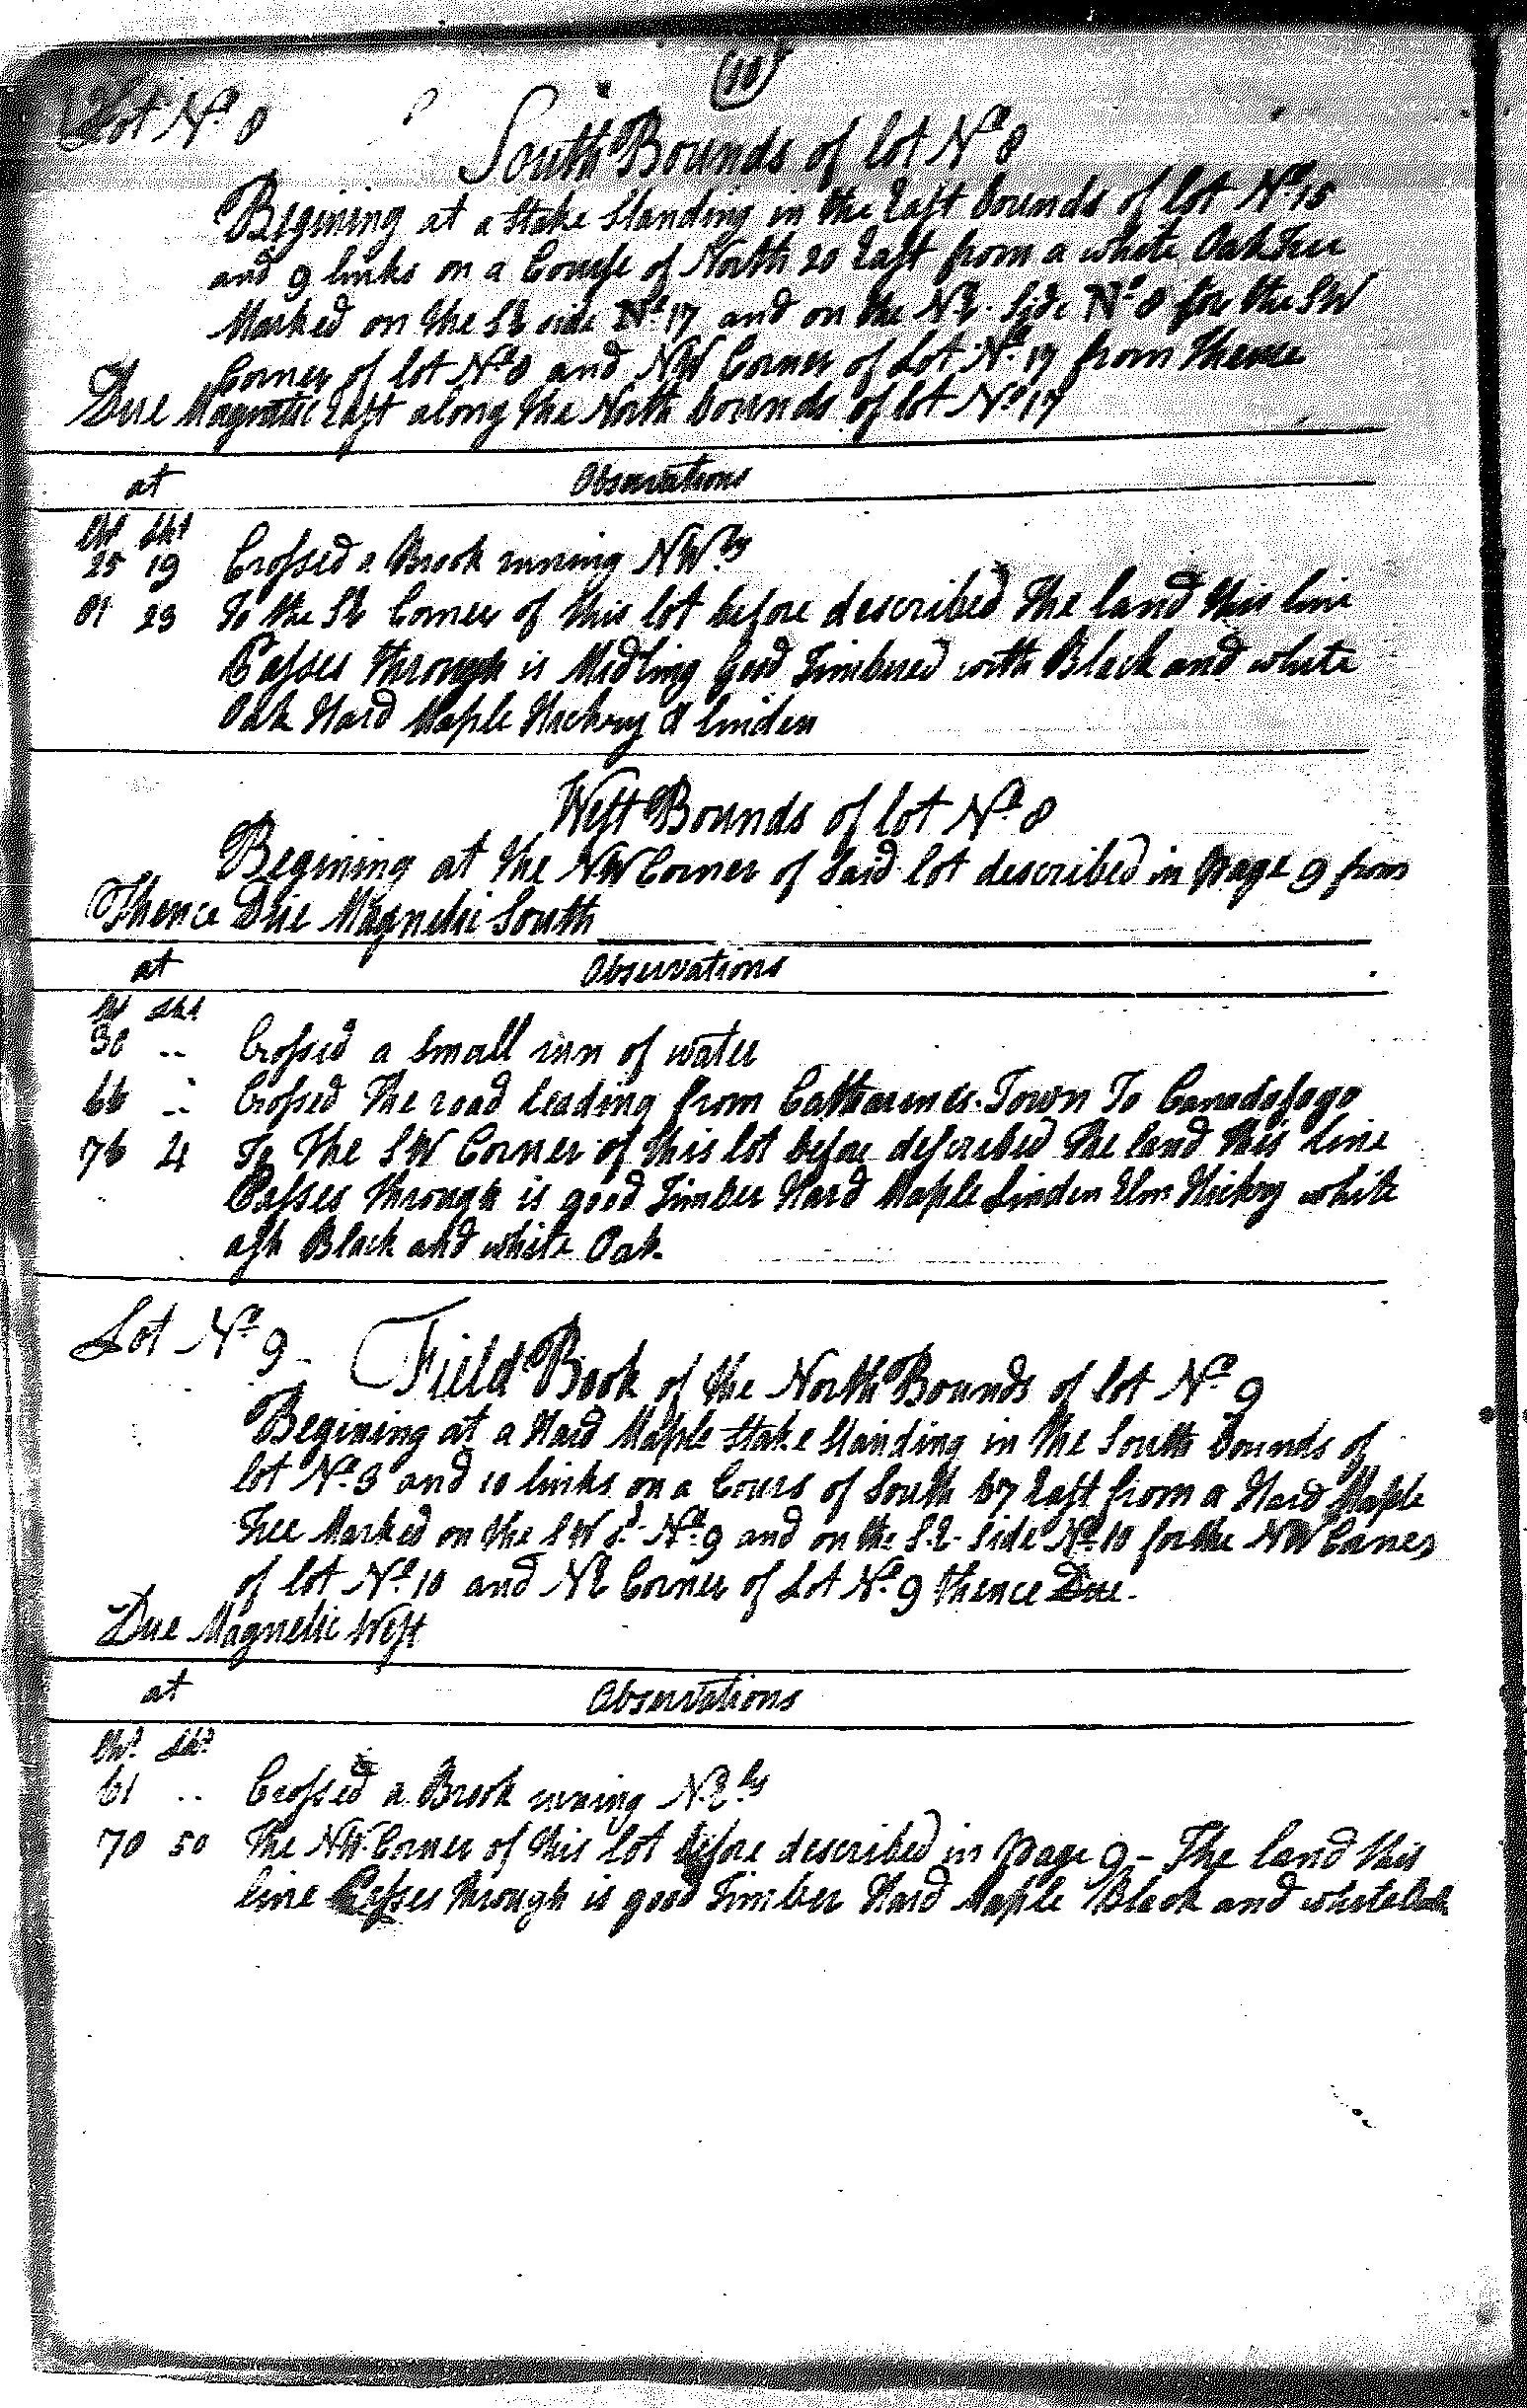 (10)
Lot Nº 8
South Bounds of lot Nº 8
Begining at a stake Standing in the East bounds of lot Nº 18
and 9 links on a Course of North 20 East from a white Oak Tree
Marked on the SE side Nº 17 and on the N.E. Side Nº 8 for the SW
Corner of lot Nº 8 and NW Corner of Lot Nº 17 from Thence
Due Magnetic East along the North bounds of lot Nº 17
at Observations
Chs Lks
25 19 Crossed a Brook runing NWly
81 23 To the SE Corner of this lot before described The land this line
Passes through is Midling Good Timbered with Black and white
Oak Hard Maple Hickory & linden
West Bounds of lot Nº 8
Begining at the NW Corner of Said lot described in Page 9 from
Thence Due Magnetic South
at Observations
Chs Lks
38 .. Crossed a Small run of water
66 .. Crossed The road leading from Catharines Town To Canadasago
76 4 To The SW Corner of this lot before described The land this line
Passes through is good Timber Hard Maple Linden Elm Hickory white
ash Black and white Oak
Lot Nº 9
Field Book of the North Bounds of lot Nº 9
Begining at a Hard Maple Stake Standing in the South bounds of
lot Nº 3 and 10 links on a Cours of South 67 East from a Hard Maple
Tree Marked on the SW S. Nº 9 and on the S.E. Side Nº 10 for the NW Corner
of lot Nº 10 and NE Corner of Lot Nº 9 thence Due
Due Magnetic West
at Observations
Chs Lks
61 .. Crossed a Brook runing N.Ely
70 50 The NW Corner of this lot before described in Page 9 – The land this
line Passes through is good Timber Hard Maple Black and white Oak